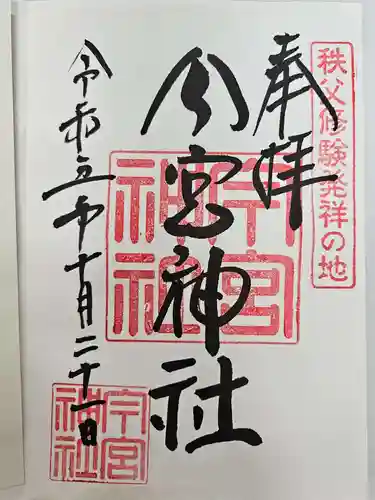 秩父修験発祥の地
奉拝
今宮神社
今宮神社
令和五年十月二十一日
今宮神社